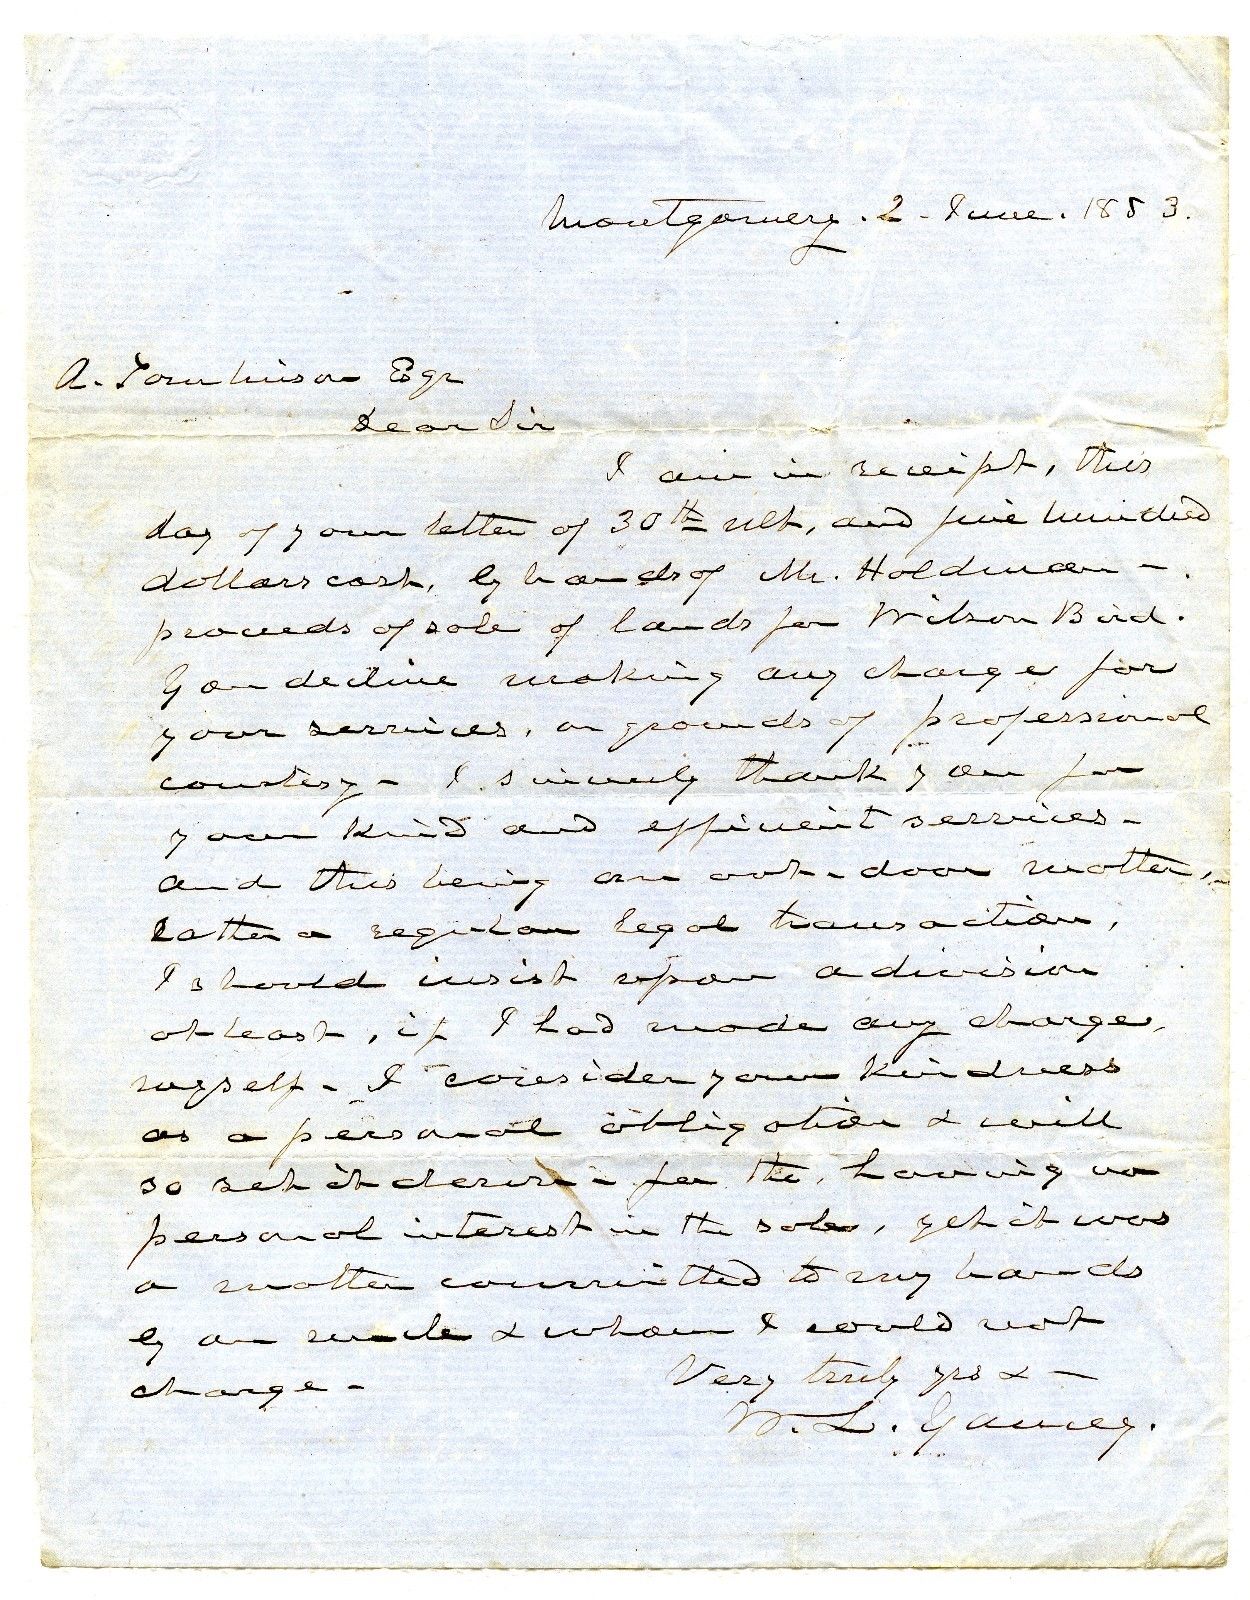 Montgomery. 2 - June. 1853.
A. Tomlinson Esqr
Dear Sir
I am in receipt, this
day of your letter of 30th ult, and five hundred
dollars cash, by hands of Mr. Holdman -.
proceeds of sale of lands for Wilson Bird.
You decline making any charge for
your services, on grounds of professional
courtesy - I sincerely thank you for
your kind and efficient services -
and this being an out-door matter,
rather a regular legal transaction,
I should insist upon a division
at least, if I had made any charge,
myself - I consider your kindness
as a personal obligation & will
so set it down - for the, having no
personal interest in the sale, yet it was
a matter committed to my hands
by an uncle & whom I could not
charge -
Very truly yrs & -
W. L. Yancey.